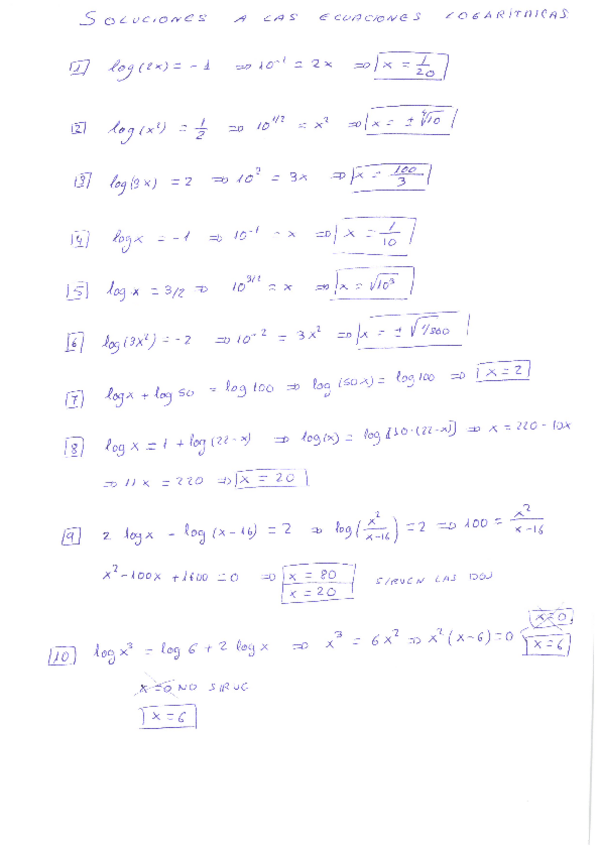 SOLUCIONES A LAS ECUACIONES LOGARÍTMICAS
1 log(2x) = -1 ⇒ 10⁻¹ = 2x ⇒ x = 1/20
2 log(x²) = 1/2 ⇒ 10^(1/2) = x² ⇒ x = ± ⁴√10
3 log(3x) = 2 ⇒ 10² = 3x ⇒ x = 100/3
4 log x = -1 ⇒ 10⁻¹ = x ⇒ x = 1/10
5 log x = 3/2 ⇒ 10^(3/2) = x ⇒ x = √10³
6 log(3x²) = -2 ⇒ 10⁻² = 3x² ⇒ x = ± √1/300
7 log x + log 50 = log 100 ⇒ log(50x) = log 100 ⇒ x = 2
8 log x = 1 + log(22-x) ⇒ log(x) = log[10·(22-x)] ⇒ x = 220 - 10x
⇒ 11x = 220 ⇒ x = 20
9 2 log x - log(x-16) = 2 ⇒ log(x²/x-16) = 2 ⇒ 100 = x²/x-16
x² - 100x + 1600 = 0 ⇒ x = 80
x = 20
SIRVEN LAS DOS
10 log x³ = log 6 + 2 log x ⇒ x³ = 6x² ⇒ x²(x-6) = 0 x=0
x=6
x=0 NO SIRVE
x = 6